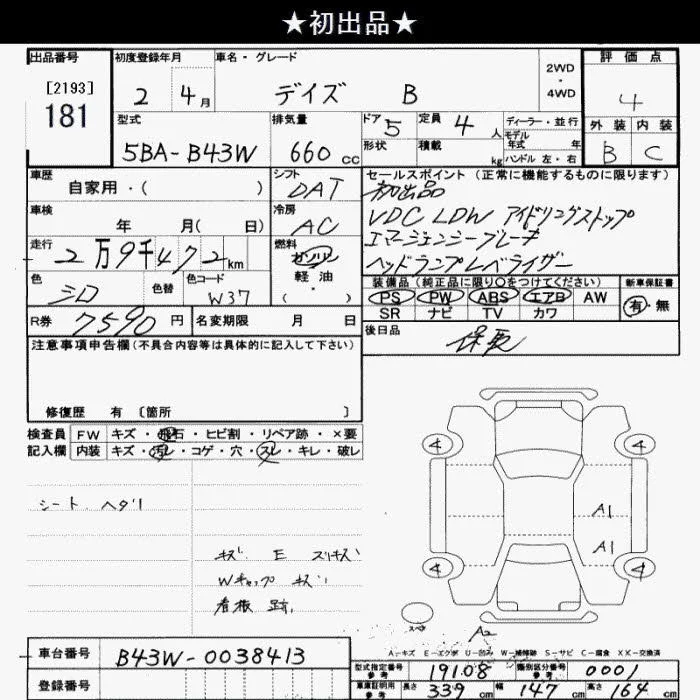 ★初出品★
出品番号 初度登録年月 車名・グレード 2WD・4WD 評価点
[2193]
181 2 4月 デイズ B 4
型式 排気量 ドア 5 定員 4人 ディーラー・並行 外装 内装
5BA-B43W 660cc 形状 積載 kg モデル年式 年 B C
ハンドル 左・右
車歴 シフト セールスポイント (正常に機能するものに限ります)
自家用・( ) DAT 初出品
車検 冷房 VDC LDW アイドリングストップ
年 月( 日) AC エマージェンシーブレーキ
走行 燃料 ヘッドランプレベライザー
2万9千472km ガソリン
色 色替 色コード 軽・油 装備品 (純正品に限り○をつけてください) 新車保証書
シロ W37 ( ) PS PW ABS エアB AW 有・無
SR ナビ TV カワ
R券 7590円 名変期限 月 日 後日品
注意事項申告欄 (不具合内容等は具体的に記入して下さい) 保取
修復歴 有 〔箇所 〕
検査員 FW キズ・飛石・ヒビ割・リペア跡・×要
記入欄 内装 キズ・汚レ・コゲ・穴・スレ・キレ・破レ
4 4
シート ヘタリ
A1
A1
キズ E スリキズ
Wキャップ キズ 4 4
看板 跡
スペ A2
A-キズ E-エクボ U-凹み W-補修跡 S-サビ C-腐食 XX-交換済
車台番号 B43W-0038413
型式指定番号 参考 19108 類別区分番号 参考 0001
登録番号
車庫証明用 参考 長さ 339cm 幅 147cm 高さ 164cm